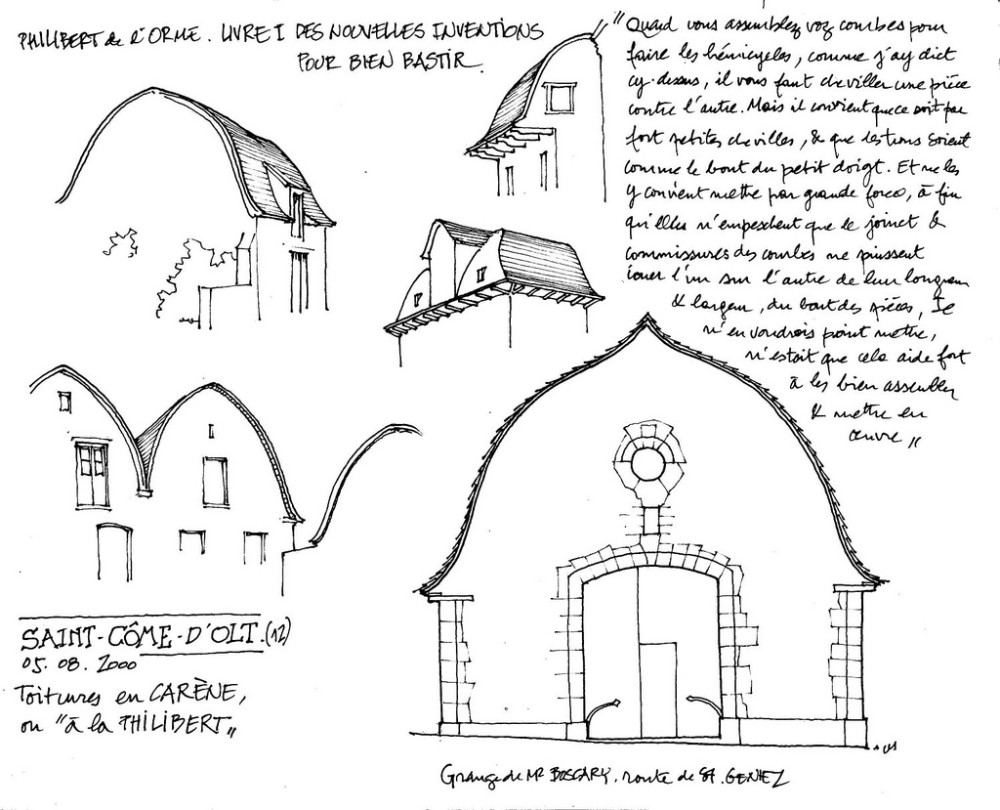 PHILIBERT de L'ORME. LIVRE I DES NOUVELLES INVENTIONS
POUR BIEN BASTIR.
"Quand vous assemblez voz courbes pour
faire les hémicycles, comme j'ay dict
cy-dessus, il vous faut cheviller une pièce
contre l'autre. Mais il convient que ce soit par
fort petites chevilles, & que les trous soient
comme le bout du petit doigt. Et ne les
y convient mettre par grande force, à fin
qu'elles n'empeschent que le joinct &
commissures des courbes ne puissent
iouer l'un sur l'autre de leur longueur
& largeur, du bout des pièces, Je
n'en voudrois point mettre,
n'estait que cela aide fort
à les bien assembler
& mettre en
œuvre,,
SAINT-CÔME-D'OLT.(12)
05. 08. 2000
Toitures en CARÈNE,
ou "à la PHILIBERT,,
Grange de Mr BOSCARY. route de St. GENIEZ